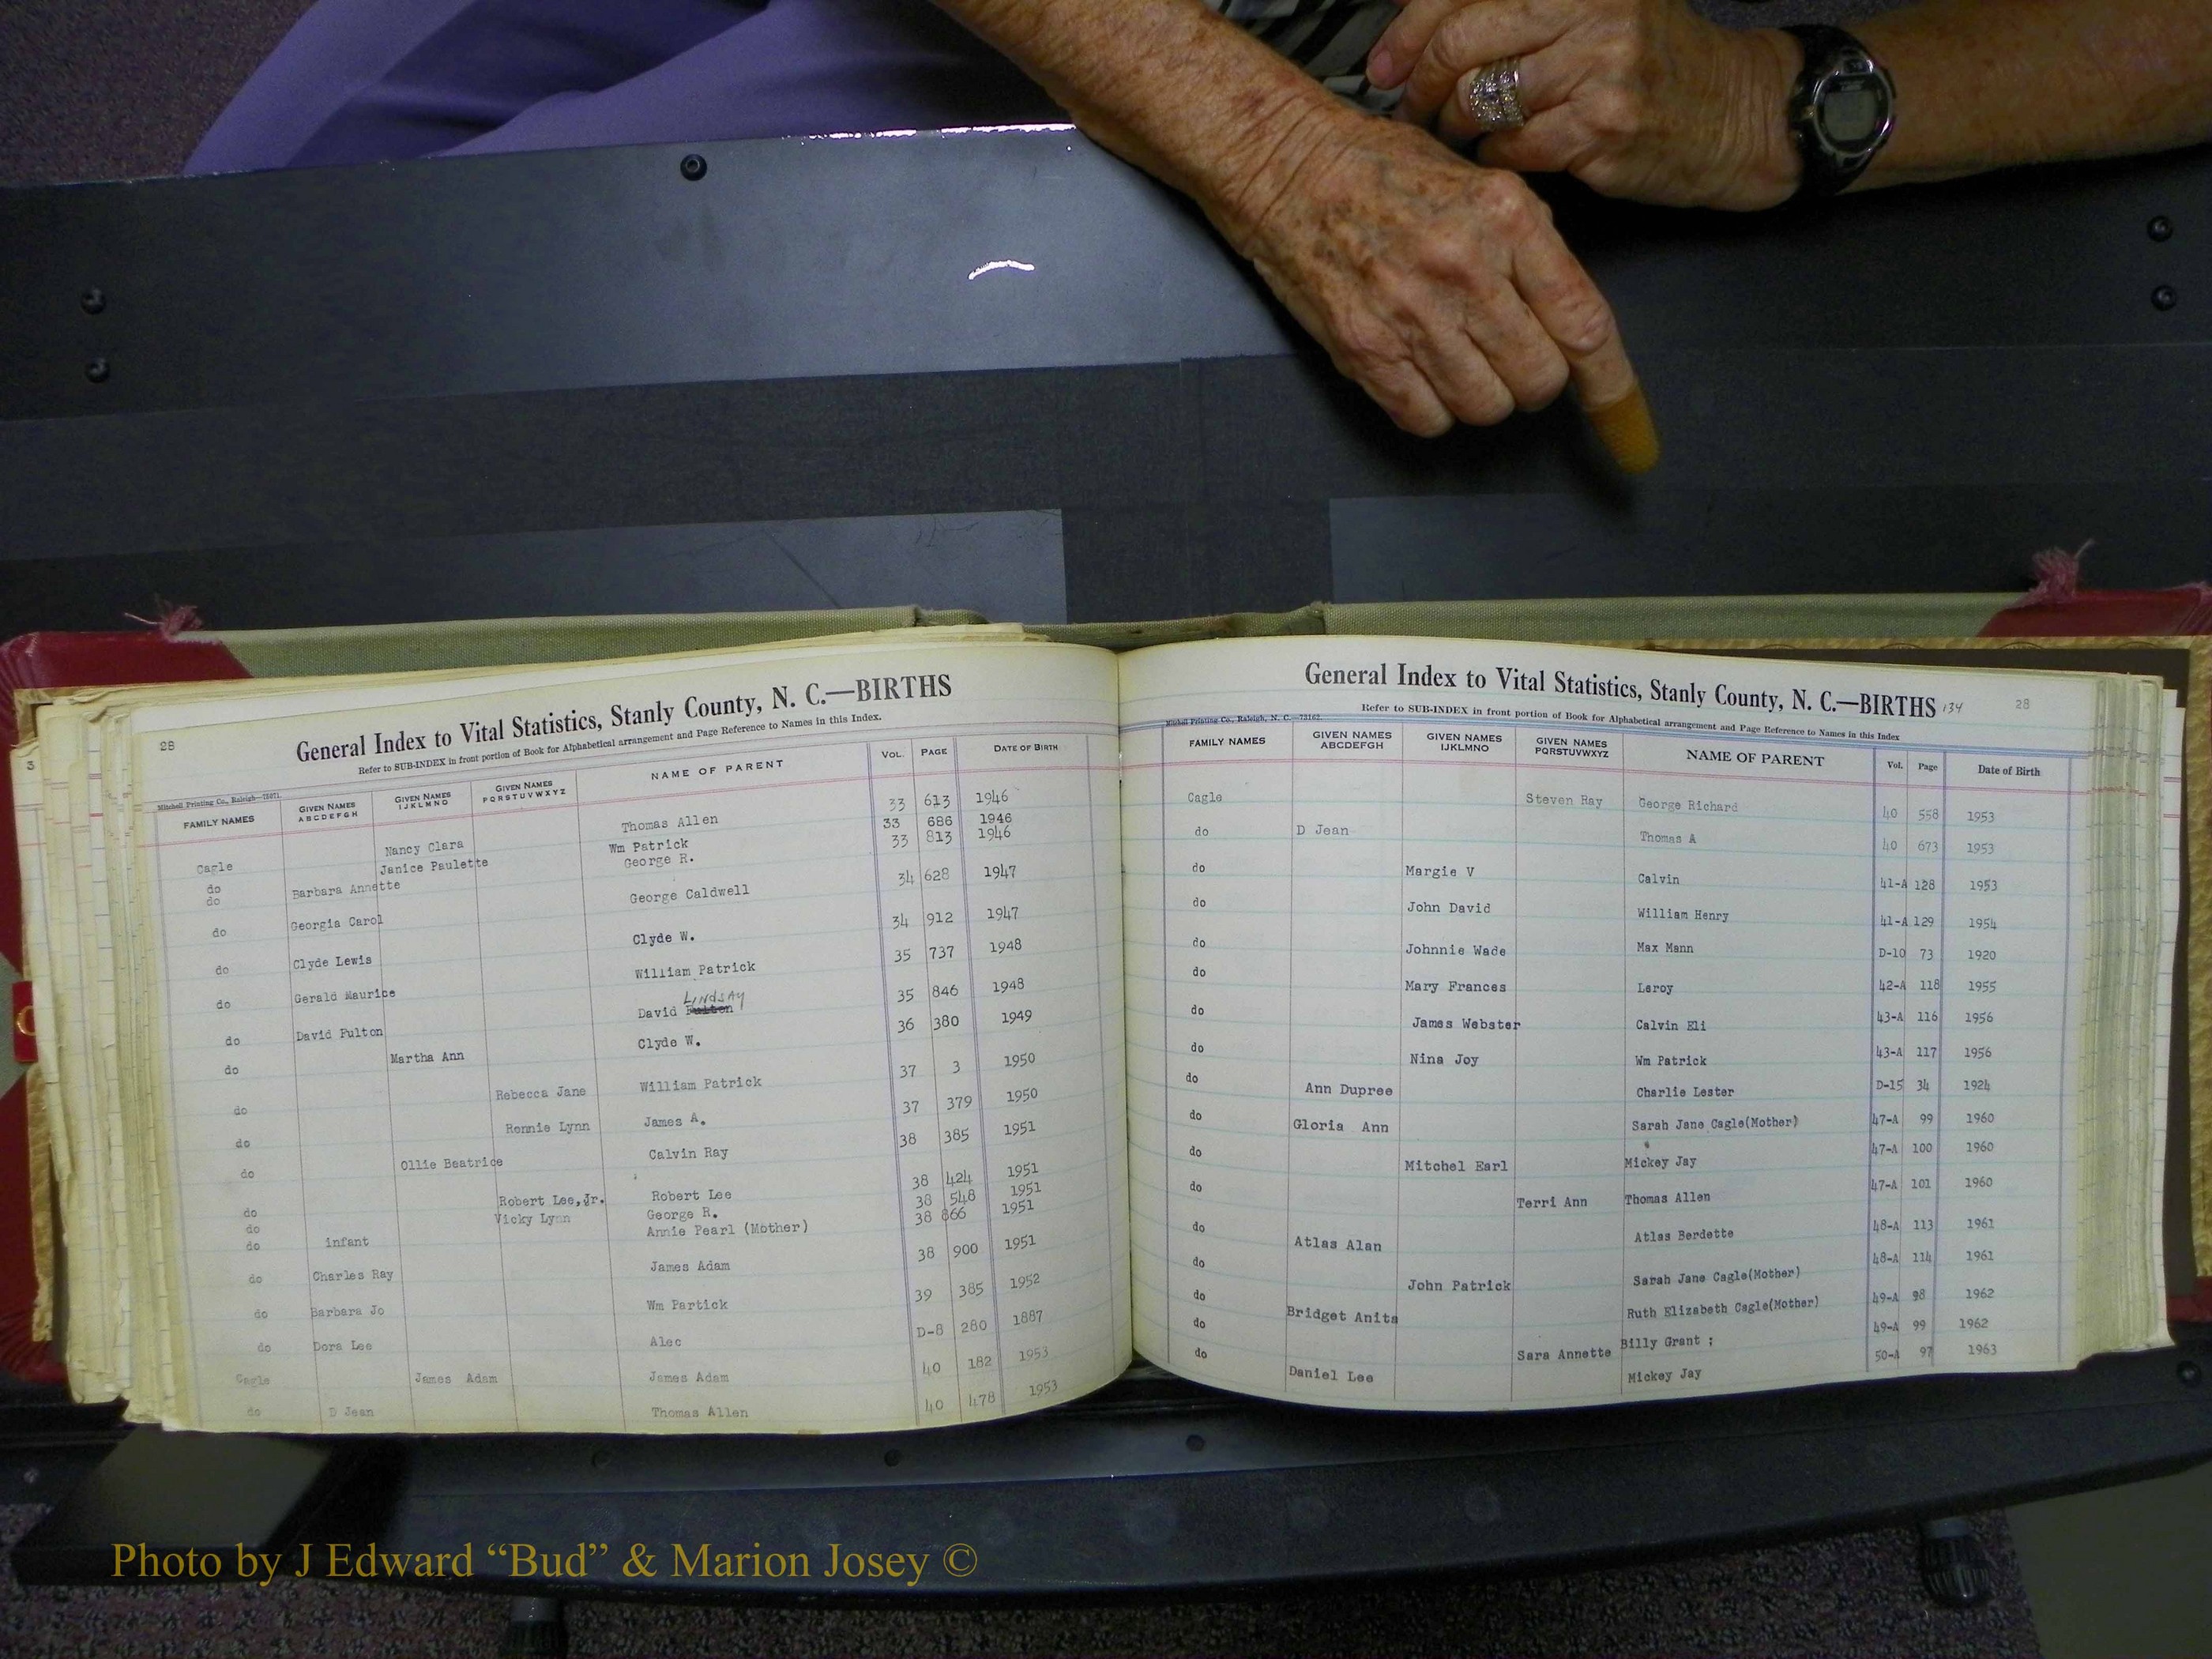 28
General Index to Vital Statistics, Stanly County, N. C.—BIRTHS
Refer to SUB-INDEX in front portion of Book for Alphabetical arrangement and Page Reference to Names in this Index.
Mitchell Printing Co., Raleigh—75071
FAMILY NAMES GIVEN NAMES ABCDEFGH GIVEN NAMES IJKLMNO GIVEN NAMES PQRSTUVWXYZ NAME OF PARENT VOL. PAGE DATE OF BIRTH
Cagle Nancy Clara Thomas Allen 33 613 1946
do Janice Paulette Wm Patrick 33 686 1946
do Barbara Annette George R. 33 813 1946
do Georgia Carol George Caldwell 34 628 1947
do Clyde Lewis Clyde W. 34 912 1947
do Gerald Maurice William Patrick 35 737 1948
do David Fulton David Fulton LINDSAY 35 846 1948
do Martha Ann Clyde W. 36 380 1949
do Rebecca Jane William Patrick 37 3 1950
do Ronnie Lynn James A. 37 379 1950
do Ollie Beatrice Calvin Ray 38 385 1951
do Robert Lee,Jr. Robert Lee 38 424 1951
do Vicky Lynn George R. 38 548 1951
do infant Annie Pearl (Mother) 38 866 1951
do Charles Ray James Adam 38 900 1951
do Barbara Jo Wm Partick 39 385 1952
do Dora Lee Alec D-8 280 1887
Cagle James Adam James Adam 40 182 1953
do D Jean Thomas Allen 40 478 1953
General Index to Vital Statistics, Stanly County, N. C.—BIRTHS 134 28
Refer to SUB-INDEX in front portion of Book for Alphabetical arrangement and Page Reference to Names in this Index
Mitchell Printing Co., Raleigh, N. C.—73162
FAMILY NAMES GIVEN NAMES ABCDEFGH GIVEN NAMES IJKLMNO GIVEN NAMES PQRSTUVWXYZ NAME OF PARENT Vol. Page Date of Birth
Cagle Steven Ray George Richard 40 558 1953
do D Jean Thomas A 40 673 1953
do Margie V Calvin 41-A 128 1953
do John David William Henry 41-A 129 1954
do Johnnie Wade Max Mann D-10 73 1920
do Mary Frances Leroy 42-A 118 1955
do James Webster Calvin Eli 43-A 116 1956
do Nina Joy Wm Patrick 43-A 117 1956
do Ann Dupree Charlie Lester D-15 34 1924
do Gloria Ann Sarah Jane Cagle(Mother) 47-A 99 1960
do Mitchel Earl Mickey Jay 47-A 100 1960
do Terri Ann Thomas Allen 47-A 101 1960
do Atlas Alan Atlas Berdette 48-A 113 1961
do John Patrick Sarah Jane Cagle(Mother) 48-A 114 1961
do Bridget Anita Ruth Elizabeth Cagle(Mother) 49-A 98 1962
do Sara Annette Billy Grant ; 49-A 99 1962
do Daniel Lee Mickey Jay 50-A 97 1963
Photo by J Edward “Bud” & Marion Josey ©